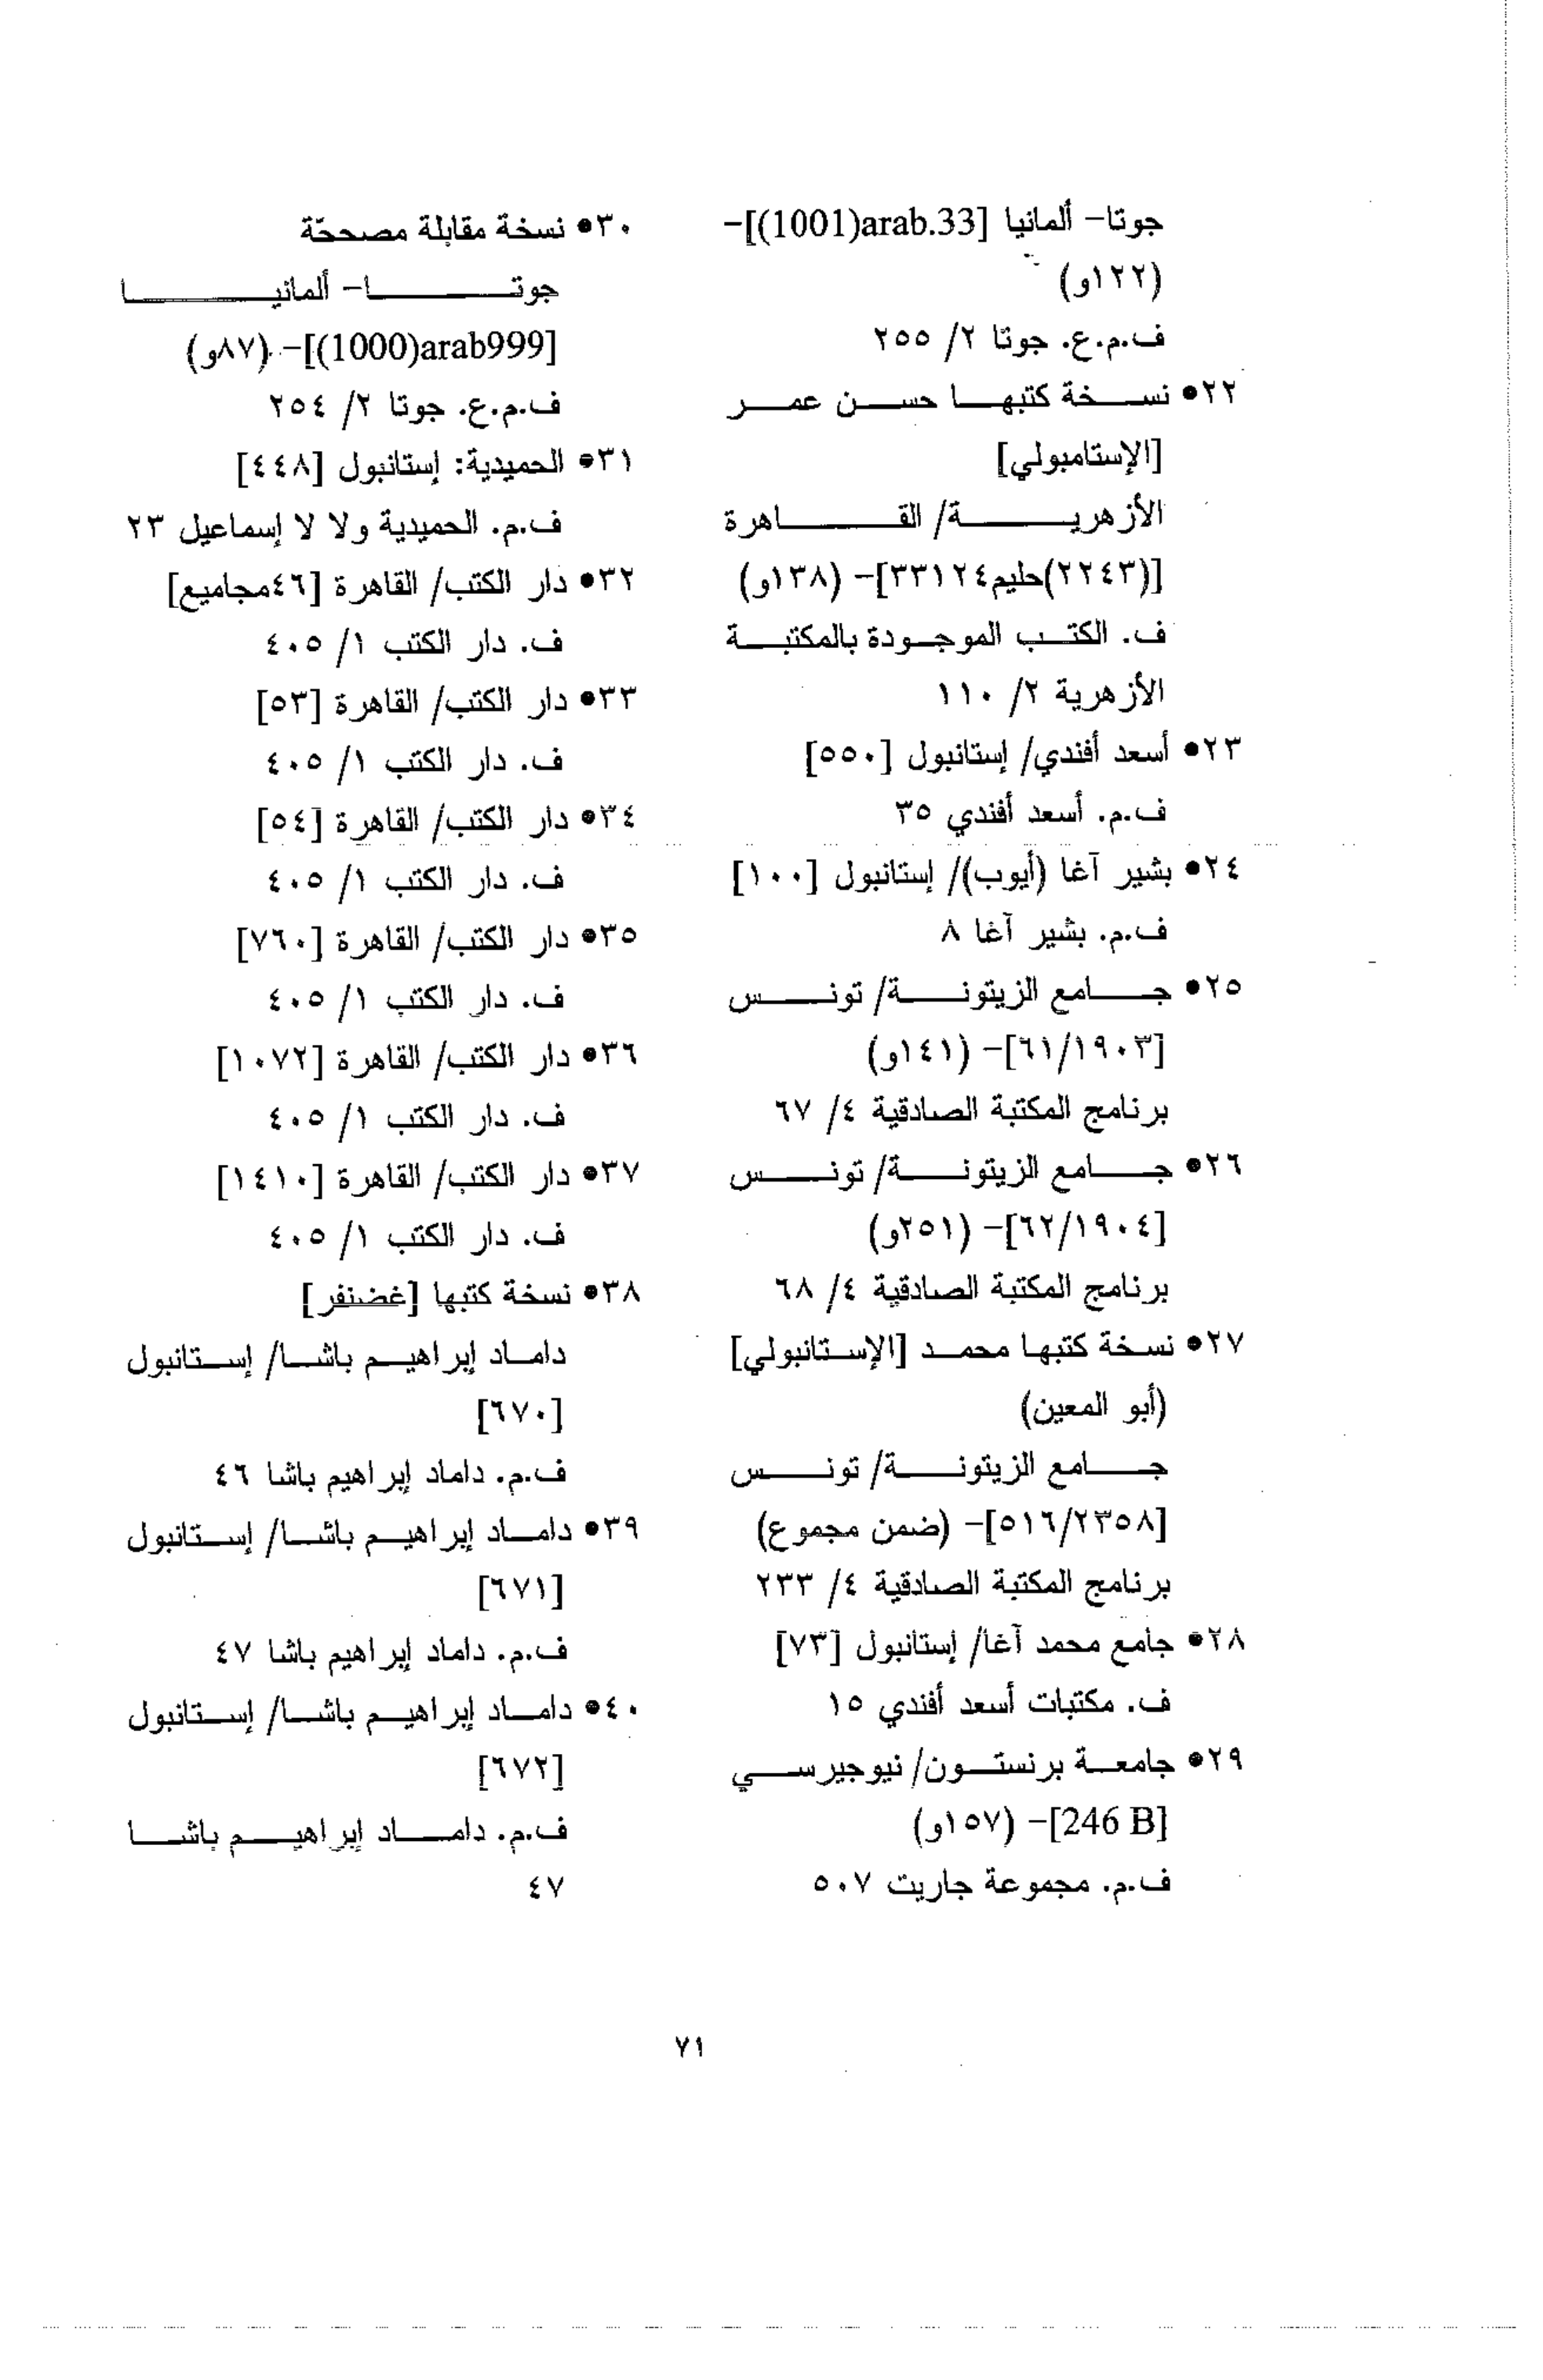 جوتا- ألمانيا [arab.33(1001)]-
(١٢٢و)
ف.م.ع. جوتا ٢/ ٢٥٥
٢٢● نسخة كتبها حسن عمر
[الإستامبولي]
الأزهرية/ القاهرة
[(٢٢٤٣)حليم٣٣١٢٤]- (١٣٨و)
ف. الكتب الموجودة بالمكتبة
الأزهرية ٢/ ١١٠
٢٣● أسعد أفندي/ إستانبول [٥٥٠]
ف.م. أسعد أفندي ٣٥
٢٤● بشير آغا (أيوب)/ إستانبول [١٠٠]
ف.م. بشير آغا ٨
٢٥● جامع الزيتونة/ تونس
[٦١/١٩٠٣]- (١٤١و)
برنامج المكتبة الصادقية ٤/ ٦٧
٢٦● جامع الزيتونة/ تونس
[٦٢/١٩٠٤]- (٢٥١و)
برنامج المكتبة الصادقية ٤/ ٦٨
٢٧● نسخة كتبها محمد [الإستانبولي]
(أبو المعين)
جامع الزيتونة/ تونس
[٥١٦/٢٣٥٨]- (ضمن مجموع)
برنامج المكتبة الصادقية ٤/ ٢٣٣
٢٨● جامع محمد آغا/ إستانبول [٧٣]
ف. مكتبات أسعد أفندي ١٥
٢٩● جامعة برنستون/ نيوجيرسي
[246 B]- (١٥٧و)
ف.م. مجموعة جاريت ٥٠٧
٣٠● نسخة مقابلة مصححّة
جوتا- ألمانيا
[arab999(1000)]- (٨٧و)
ف.م.ع. جوتا ٢/ ٢٥٤
٣١● الحميدية: إستانبول [٤٤٨]
ف.م. الحميدية ولا لا إسماعيل ٢٣
٣٢● دار الكتب/ القاهرة [٤٦مجاميع]
ف. دار الكتب ١/ ٤٠٥
٣٣● دار الكتب/ القاهرة [٥٣]
ف. دار الكتب ١/ ٤٠٥
٣٤● دار الكتب/ القاهرة [٥٤]
ف. دار الكتب ١/ ٤٠٥
٣٥● دار الكتب/ القاهرة [٧٦٠]
ف. دار الكتب ١/ ٤٠٥
٣٦● دار الكتب/ القاهرة [١٠٧٢]
ف. دار الكتب ١/ ٤٠٥
٣٧● دار الكتب/ القاهرة [١٤١٠]
ف. دار الكتب ١/ ٤٠٥
٣٨● نسخة كتبها [غضنفر]
داماد إبراهيم باشا/ إستانبول
[٦٧٠]
ف.م. داماد إبراهيم باشا ٤٦
٣٩● داماد إبراهيم باشا/ إستانبول
[٦٧١]
ف.م. داماد إبراهيم باشا ٤٧
٤٠● داماد إبراهيم باشا/ إستانبول
[٦٧٢]
ف.م. داماد إبراهيم باشا
٤٧
٧١